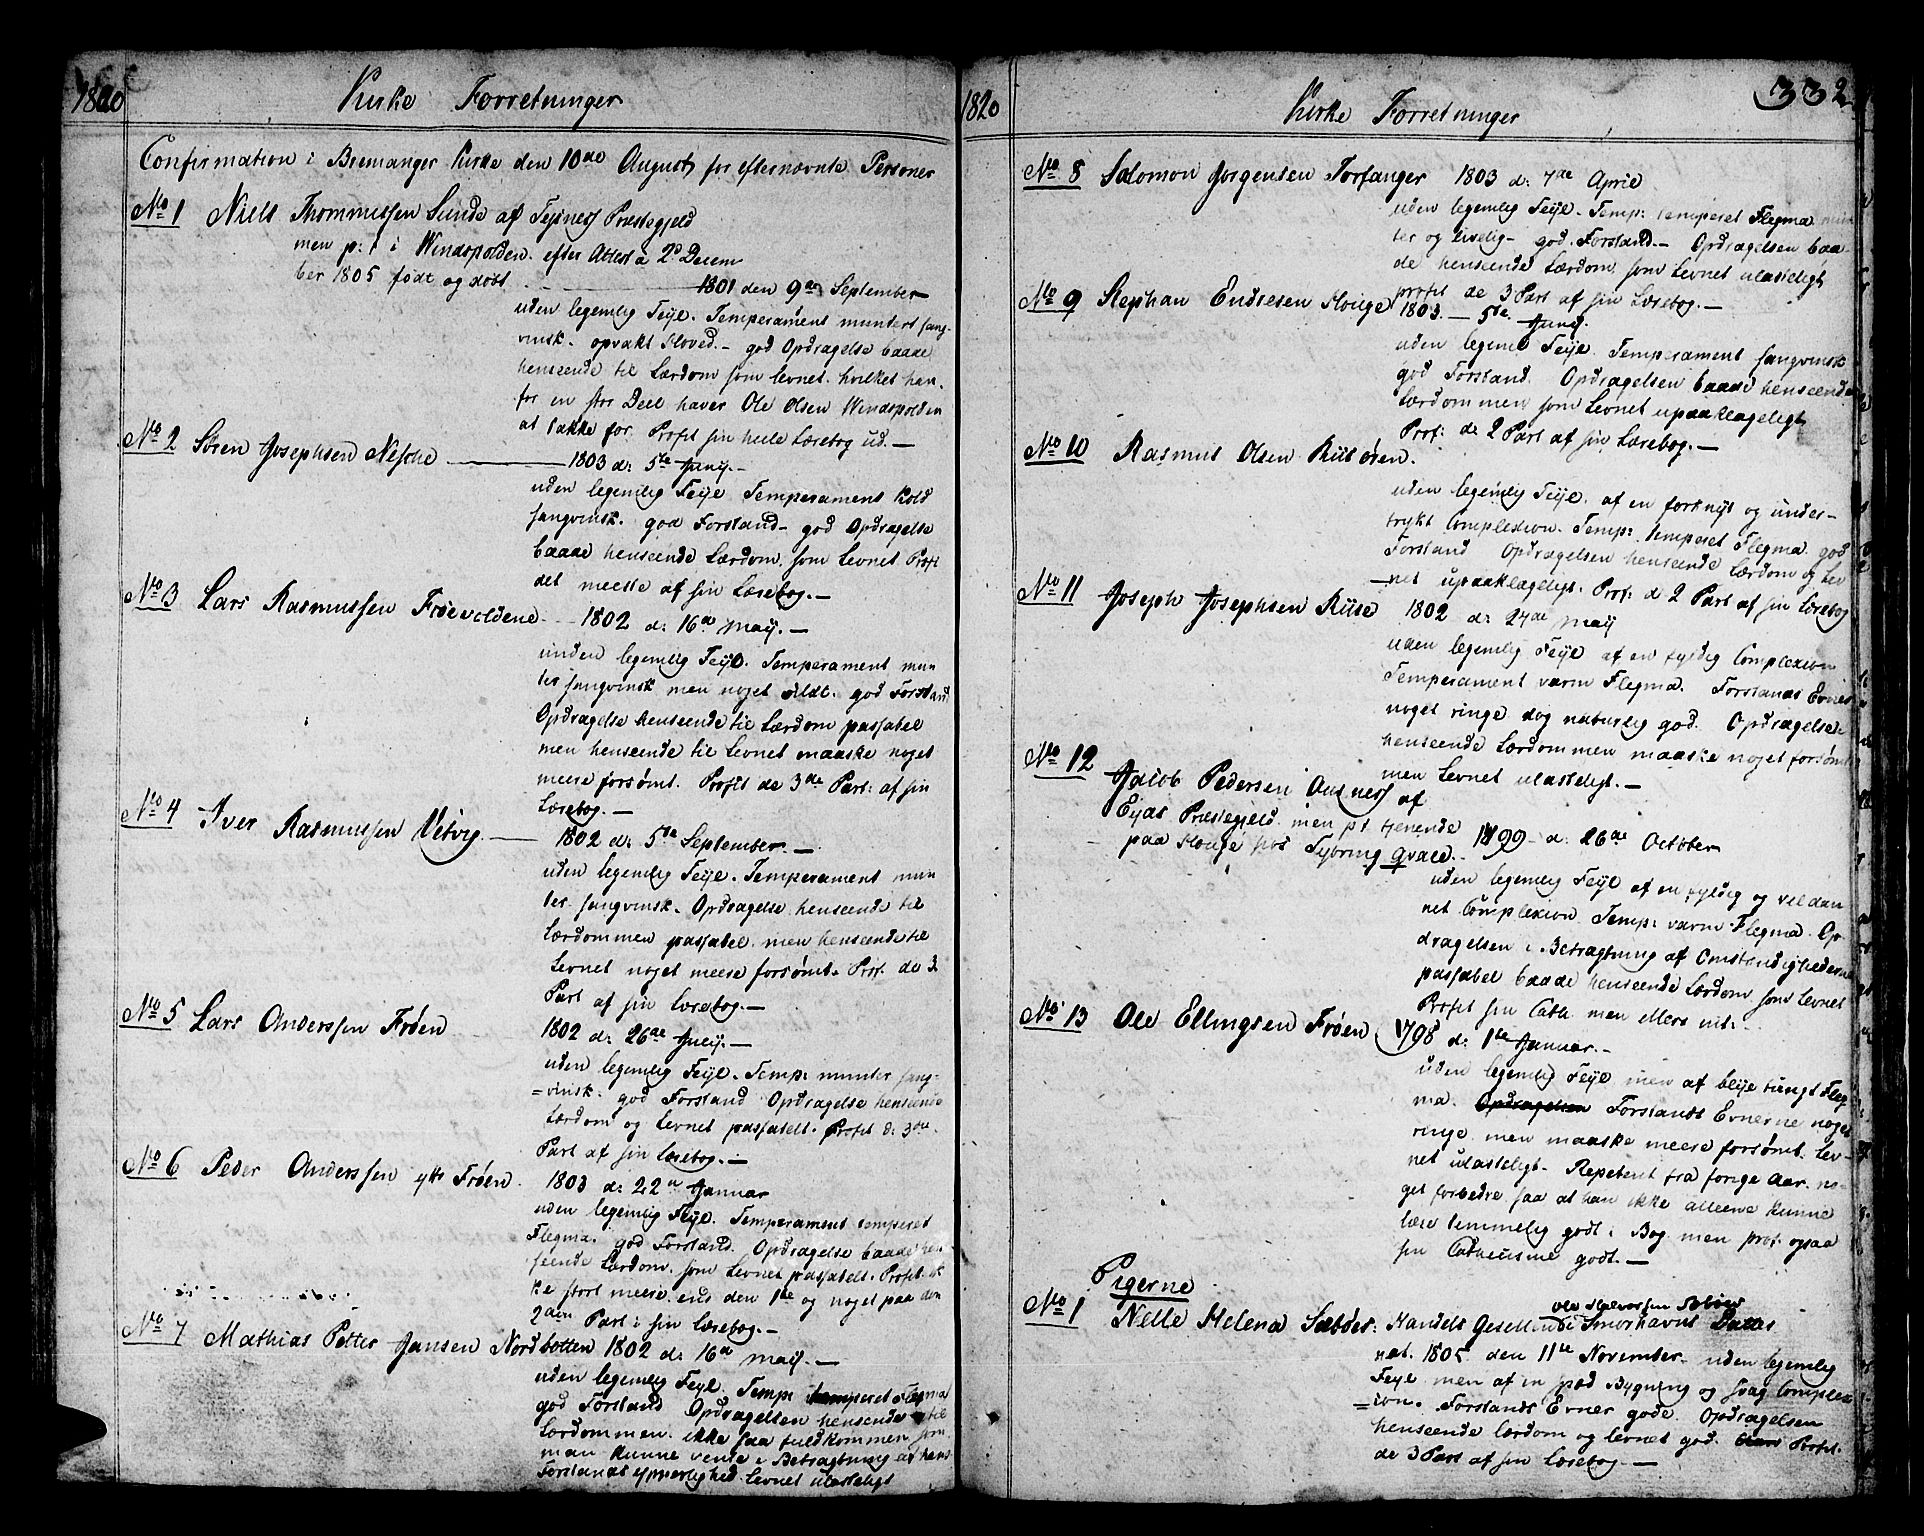 1820 Kirke Forretninger
Confirmation i Bremanger Kirke den 10de August for efternævnte Personer
No 1 Niels Thommessen Sunde af Præstegjeld
men p: t i Windspolden. efter Attest a 2d Decem
ber 1805 født og døbt
1801 den 9de September
uden legemlig Feijl. Temperament muntert sang-
vinsk. opvakt Hoved.- god Opdragelse baade
henseende til Lærdom som Levnet. hvilket han
for en stor Deel haver Ole Olsen Windspolden
at takke for. Profit sin heele Lærebog ud.-
No 2 Søren Josephsen Nesche 1803 d: 5te Junij.-
uden legemlig Feijl Temperament Kold
sangvinsk. god Forstand- god Opdragelse
baade henseende Lærdom, som Levnet Profit
det meeste af sin Lærebog.-
No 3 Lars Rasmussen Frøevoldene 1802 d: 16de Maij.-
uuden legemlig Feijl. Temperament mun
ter sangvinsk men noget vildt. god Forstand
Opdragelse henseende til Lærdom passabel
men henseende til Levnet maaske noget
meere forsømt. Profit de 3de Part: af sin
Lærebog.-
No 4 Iver Rasmussen Vetvig.- 1802 d: 5te September.-
uden legemlig Feijl. Temperament mun
ter sangvinsk. Opdragelse henseende til
Lærdommen passabel. men henseende til
Levnet noget meere forsømt. Prof. de 3
Part af sin Lærebog.-
No 5 Lars Anderssen Frøen 1802 d: 26de Julij.-
uden legemlig Feijl. Temp: munter sang-
=vinsk. god Forstand Opdragelse henseende
Lærdom og Levnet passabelt. Profit d: 3die
Part af sin Lærebog.-
No 6 Peder Anderssen Frøen. 1803 d: 22de Januar
uden legemlig Feijl. Temperament temperet
Flegma. god Forstand. Opdragelse baade hen-
seende Lærdom. som Levnet passabelt. Profit. ik
ke stort meere end den 1te og noget paa den
2den Part i sin Lærebog.-
No 7 Mathias Petter Jansen Nordbotten 1802 d: 16de Maij.-
uden legemlig Feijl. Temp: temperet Flegma
god Forstand Opdragelsen henseende til
Lærdommen. ikke saa fuldkommen som
man kunne vente i Betragtning af hans
Forstands Levnet ulasteligt
1820 Kirke Forretninger 332
No 8 Salomon Jørgensen Torfanger 1803 d: 7de April
uden legemlig Feijl. Temp: temperet Flegma mun
ter og livelig- god Forstand.- Opdragelsen baa-
de henseende Lærdom som Levnet ulasteligt
profit de 3 Part af sin Lærebog.-
No 9 Stephan Endresen Houge 1803.- 5te Junij.
uden legeml Feijl Temperament sangvinsk
god Forstand. Opdragelsen baade henseende
Lærdommen som Levnet upaaklageligt
Prof: de 2 Part af sin Lærebog.-
No 10 Rasmus Olsen Riisøren.
uden legemlig Feijl. af en forknyt og under-
trykt Complexion. Temp: temperet Flegma. god
Forstand Opdragelsen henseende Lærdom og Lev
-net upaaklageligt. Prof. d 2 Part af sin Lærebog
No 11 Joseph Josephsen Riise 1802 d: 24de Maij
uden legemlig Feijl af en fyldig Complexion
Temperament varm Flegma. Forstands Evner
noget ringe dog naturlig god. Opdragelse
henseende Lærdommen maaske noget forsømt
men Levnet ulasteligt.-
No 12 Jacob Pedersen af
Eijds Præstegjeld. men p: t: tjenende
paa Houge hos Fybring qvace.- 1799 d: 26de October
uden legemlig Feijl af en fyldig og veldan
net Complexion Temp: varm Flegma. Op-
dragelsen i Betragtning af Omstændighederne
passabel baade henseende Lærdom som Levnet
Profit sin Cath: men ellers
No 13 Ole Ellingsen Frøen 1798 d: 1te Januar.-
uden legemlig Feijl men af blije tungt Fleg
ma. Opdragelsen Forstands Evnerne noget
ringe men maaske meere forsømt. Lev-
net ulasteligt. Repetent fra forige Aar. no-
get forbedre saa at han ikke alleene kunne
læse temmelig godt i Bog men prof. ogsaa
sin Cathecisme godt.-
Pigerne
No 1 Nelle Helena Sætøer: Handels Gesellen Ole Halvorsen Sætøer i Smørhavns
nat. 1805 den 11te November- uden legemlig
Feijl men af en spæd Bygning og svag Complex
=ion. Forstands Evner gode. Opdragelsen
henseende Lærdom og Levnet god. Profit.
de 3 Part af sin Lærebog.-